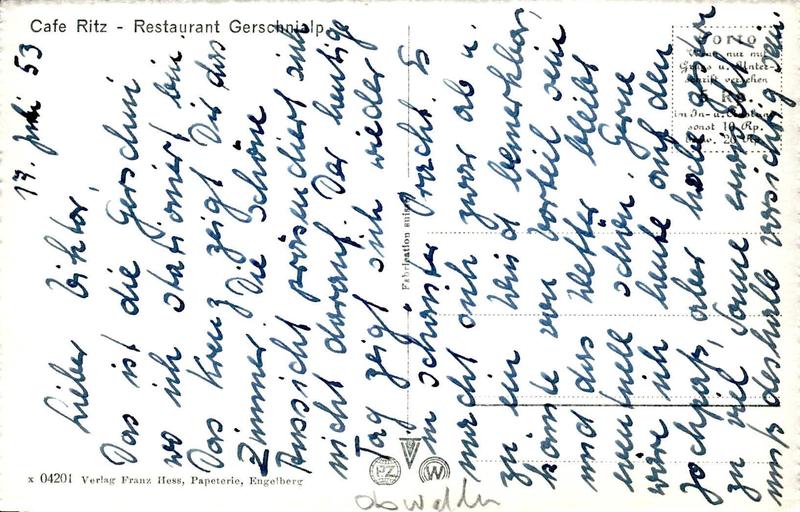 Cafe Ritz - Restaurant Gerschnialp
17. Juli 53
Lieber Viktor,
Das ist die Gerschni
wo ich stationiert bin.
Das Kreuz zeigt Dir das
Zimmer. Die schöne
Aussicht präsendiert sich
nicht darauf. Der heutige
Tag zeigt sich wieder
in schönster Pracht. Es
macht sich zwar ab u.
zu ein Wind bemerkbar,
könnte von Vorteil sein
und das Wetter bleibt
eventuell schön. Gerne
wäre ich heute auf den
Jochpass, aber habe gestern
zu viel Sonne erwischt u.
muss deshalb vorsichtig sein.
Fabrication suisse
PORTO
Wenn nur mit
Gruss u. Unter-
schrift versehen
5 Rp.
in In- u. Ausland
sonst 10 Rp.
bzw. 20 Rp.
PZ
W
x 04201 Verlag Franz Hess, Papeterie, Engelberg
obwalden